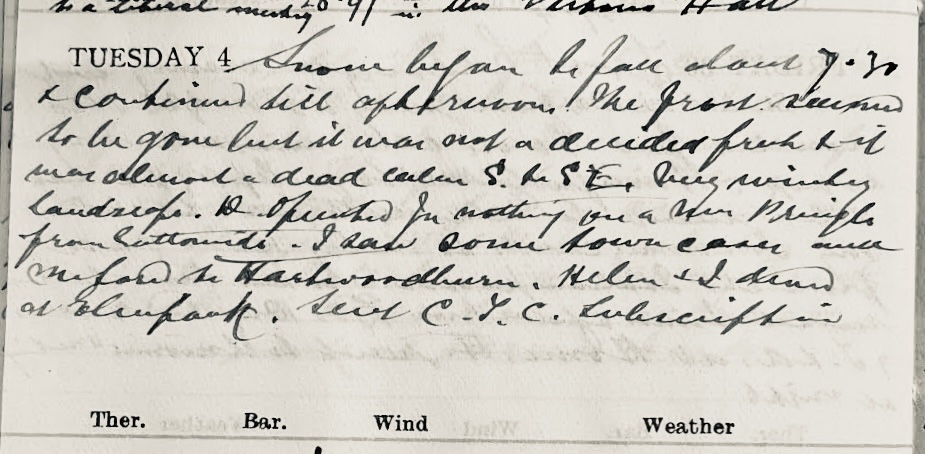 to a Liberal meeting in the Hall
TUESDAY 4 Snow began to fall about 7.30
& continued till afternoon. The frost seemed
to be gone but it was not a decided fresh & it
was almost a dead calm S. to SE. Very wintry
landscape. D. Operated for nothing on a Mrs Pringle
from . I saw some town cases and
to Hartwoodburn. Helen & I dined
at . Sent C.T.C. Subscription
Ther. Bar. Wind Weather